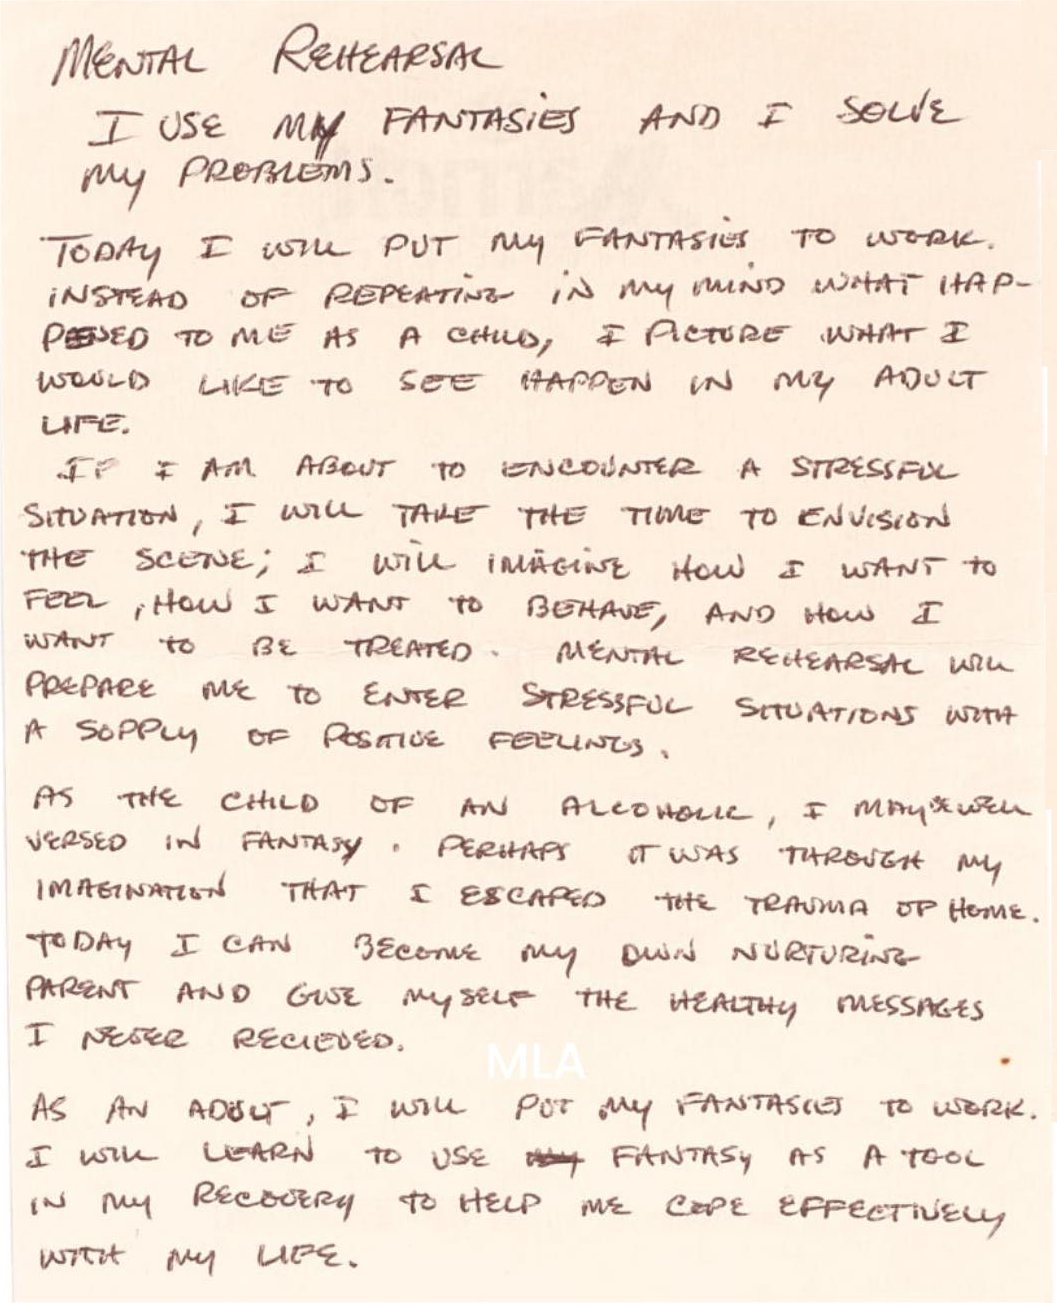 MENTAL REHEARSAL
I USE MY FANTASIES AND I SOLVE
MY PROBLEMS.
TODAY I WILL PUT MY FANTASIES TO WORK.
INSTEAD OF REPEATING IN MY MIND WHAT HAP-
PENED TO ME AS A CHILD, I PICTURE WHAT I
WOULD LIKE TO SEE HAPPEN IN MY ADULT
LIFE.
IF I AM ABOUT TO ENCOUNTER A STRESSFUL
SITUATION, I WILL TAKE THE TIME TO ENVISION
THE SCENE; I WILL IMAGINE HOW I WANT TO
FEEL, HOW I WANT TO BEHAVE, AND HOW I
WANT TO BE TREATED. MENTAL REHEARSAL WILL
PREPARE ME TO ENTER STRESSFUL SITUATIONS WITH
A SUPPLY OF POSITIVE FEELINGS.
AS THE CHILD OF AN ALCOHOLIC, I MAY BE WELL
VERSED IN FANTASY. PERHAPS IT WAS THROUGH MY
IMAGINATION THAT I ESCAPED THE TRAUMA OF HOME.
TODAY I CAN BECOME MY OWN NURTURING
PARENT AND GIVE MYSELF THE HEALTHY MESSAGES
I NEVER RECIEVED.
MLA
AS AN ADULT, I WILL PUT MY FANTASIES TO WORK.
I WILL LEARN TO USE FANTASY AS A TOOL
IN MY RECOVERY TO HELP ME COPE EFFECTIVELY
WITH MY LIFE.